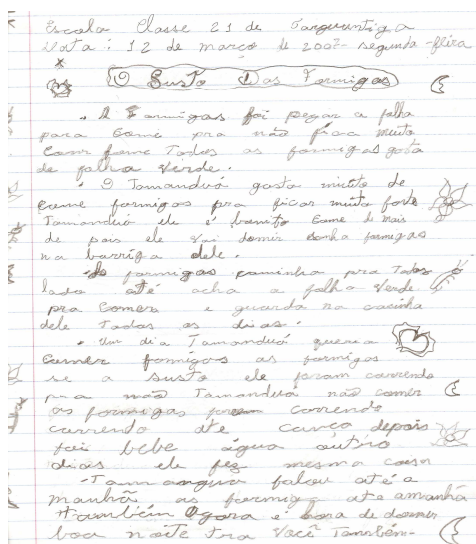 Escola Classe 21 de Taguatinga
Data: 12 de março de 2007 segunda-feira
O Susto Das Formigas
A Formigas foi pegar a folha
para Come pra não fica muito
Com fome Todas as formigas gosta
de folha verde.
O Tamanduá gosta muito de
Come formigas pra ficar muito forte
Tamanduá ele é bonito Come de mais
de pois ele vai domir Sonha formigas
na barriga dele.
formigas caminha pra Todos
lado até acha a folha verde
pra Comer e guarda na casinha
dele Todos os dias.
Um dia Tamanduá queria
Comer formigas as formigas
se a susto ele foram correndo
pra não Tamanduá não comer
as formigas foram correndo
currendo ate cança depois
foi bebe água outro
dias ele fez mesma coisa
falou até a
manhã as formiga ate amanhã
Tambéin Agora é hora de doumir
boa noite Pra Você Também-